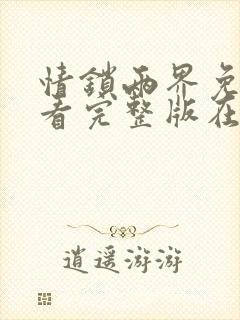 情鎖兩界免
看完整版在
逍遥游游